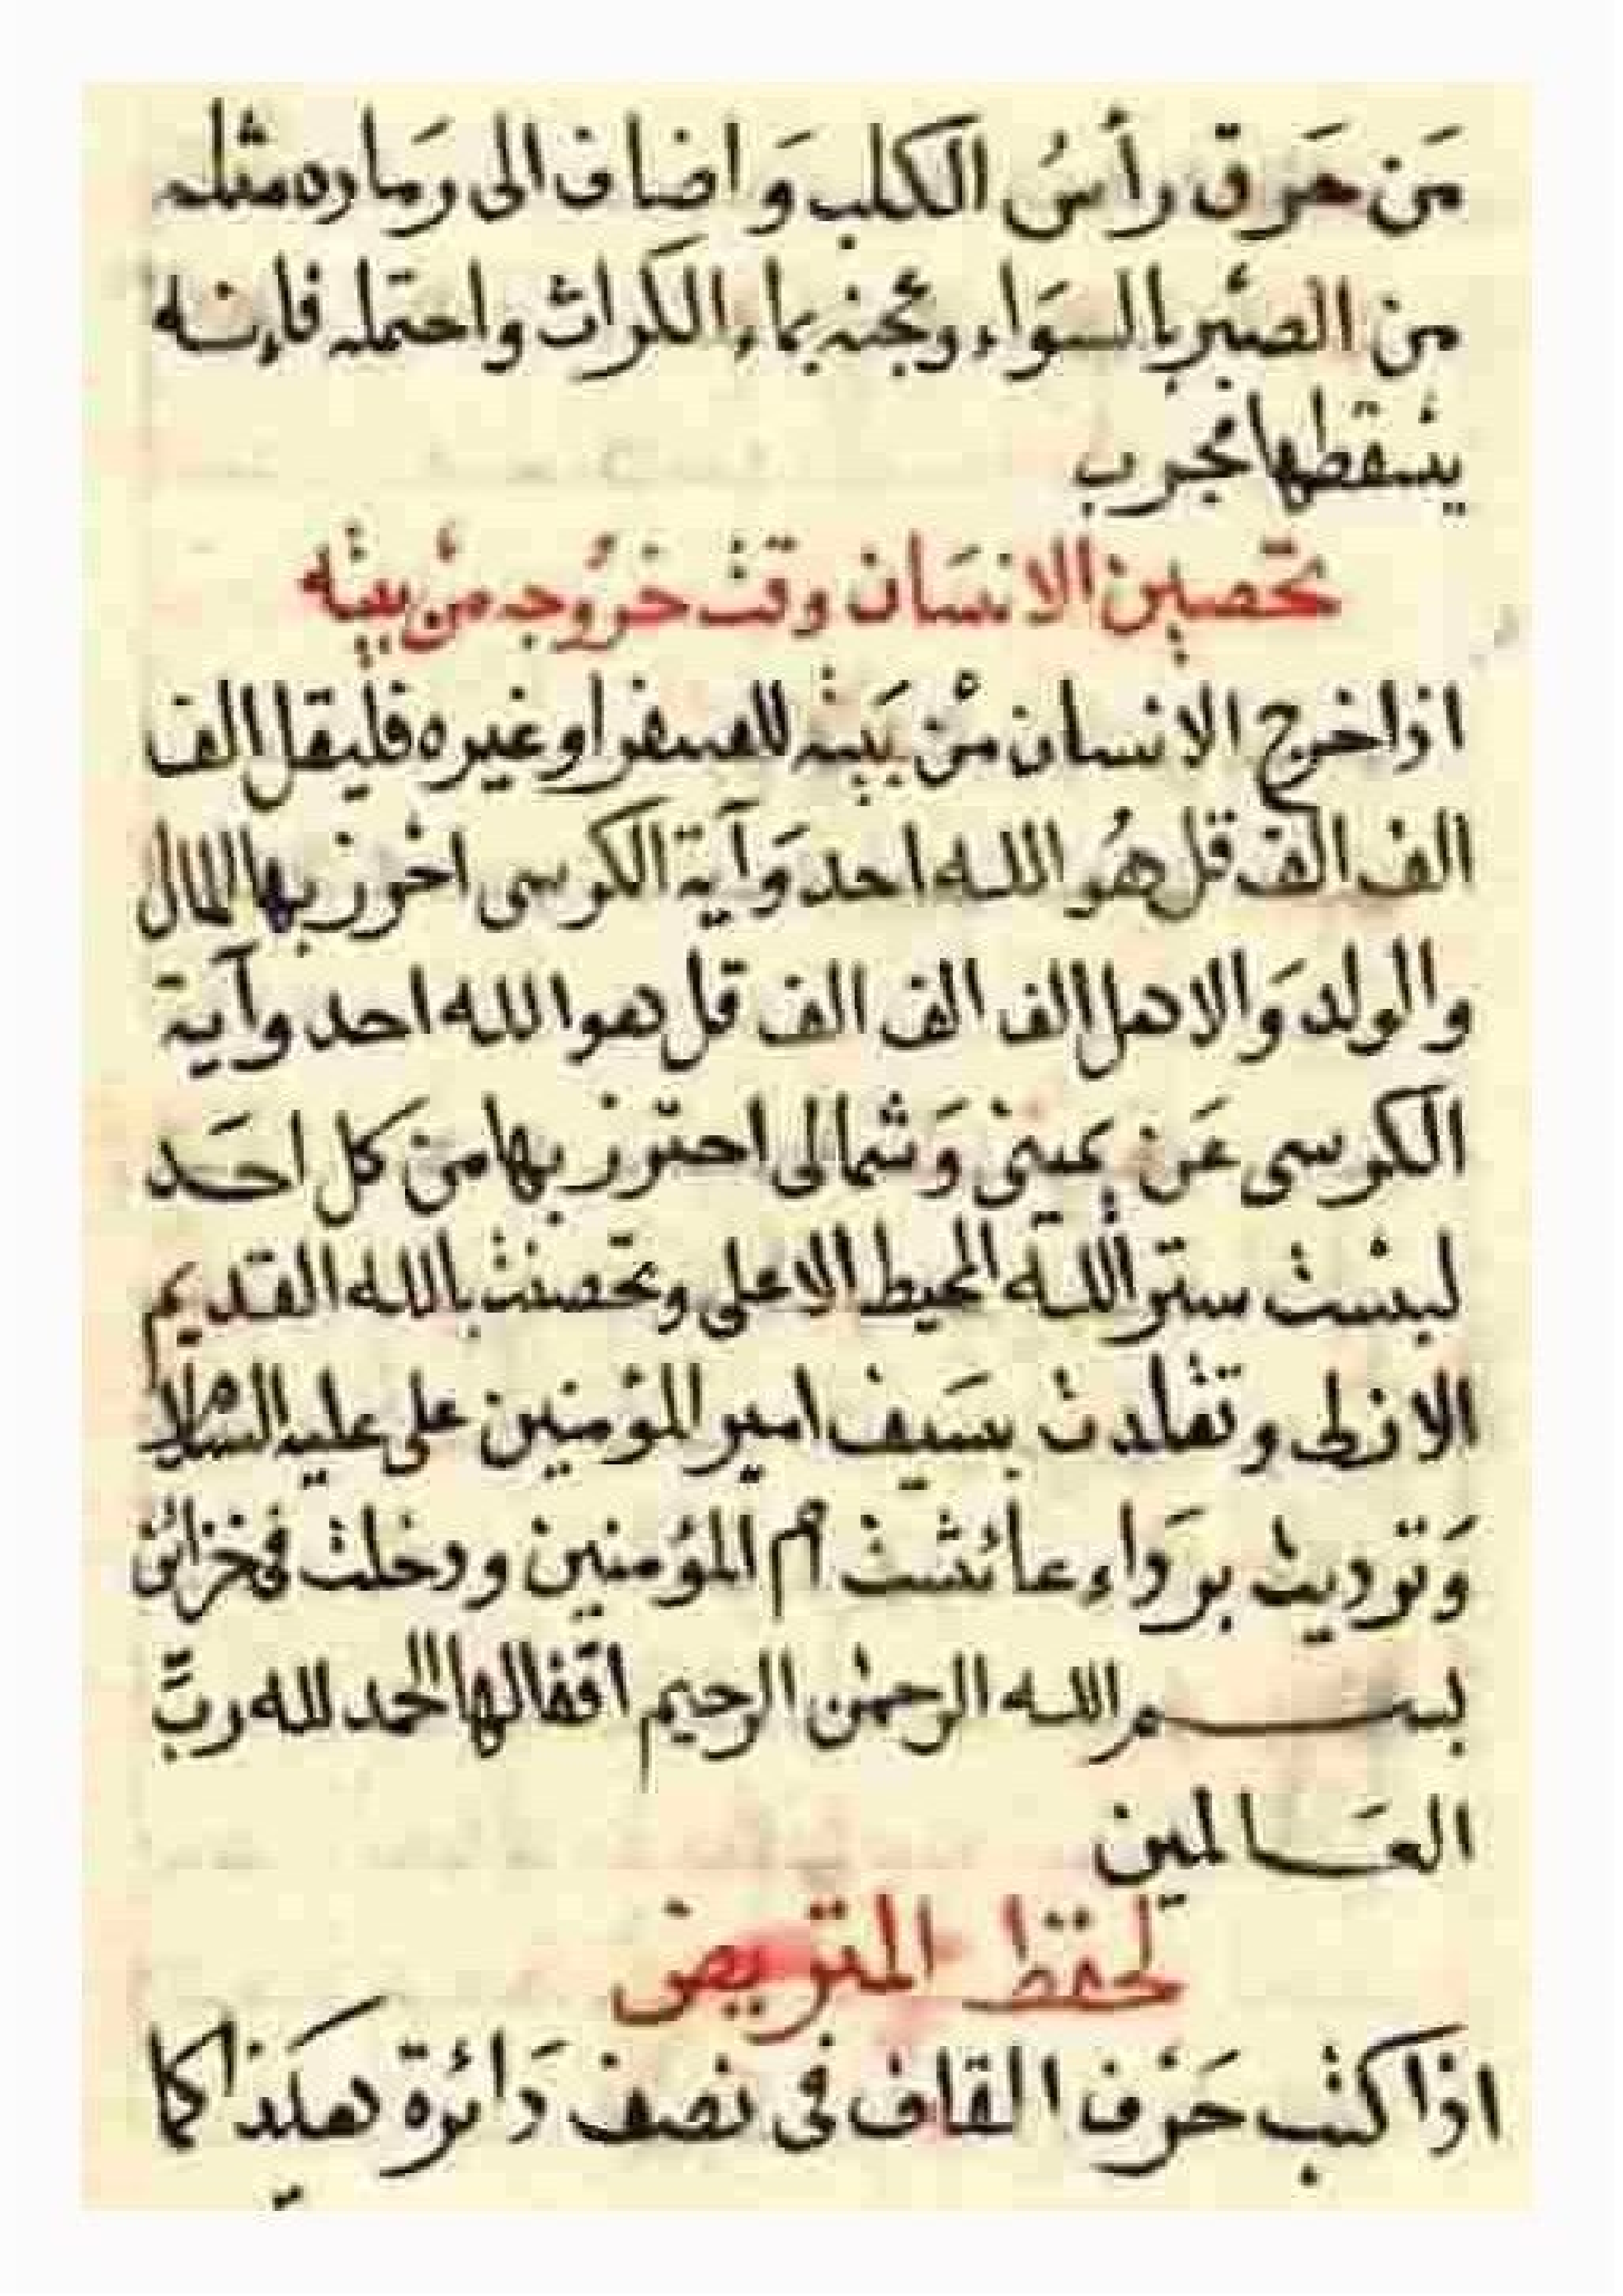 مَن حَرَق رأسُ الكلب وَاضاف الى رَماده مثله
من الصبر بالسَوَاء وعجنه بماء الكراث واحتمله فإنه
يسقطها مجرب
تحصين الانسَان وقت خرُوجه من بيته
اذا خرج الانسان منْ بَيته للسفر او غيره فليقل الف
الف الف قل هُو الله احد وَآية الكرسى احرز بها المال
والولد وَالاهل الف الف الف قل هو الله احد وآية
الكرسى عَن يمينى وَشمالى احترز بها من كل احَد
لبست ستر الله المحيط الاعلى وتحصنت بالله القديم
الازلى وتقلدت بسَيف امير المؤمنين على عليه السلام
وَترديت برداء عائشة ام المؤمنين ودخلت فى خزائن
بسم الله الرحمن الرحيم اقفالها الحمد لله ربّ
العَالمين
لحفظ
اذا كتب حَرْف القاف فى نصف دَائرة هكذا كما